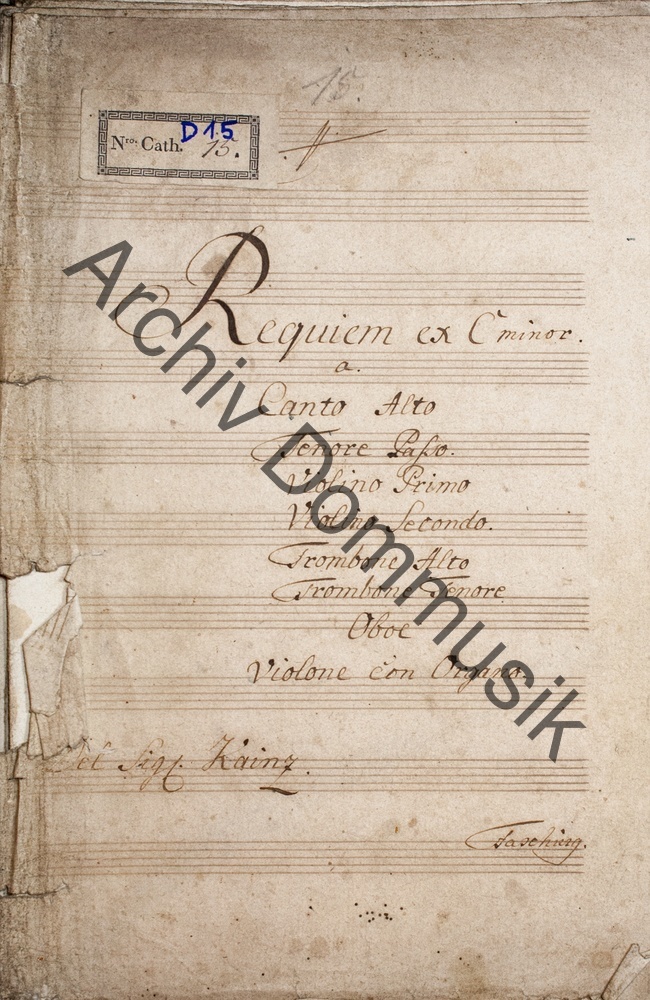 15.
D15
Nro. Cath. 15.
Requiem ex C minor.
a.
Canto Alto
Tenore Passo.
Violino Primo
Violino Secondo.
Trombone Alto
Trombone Tenore
Oboe
Violone con Organo.
Del Sigr. Kainz.
Archiv Dommusik